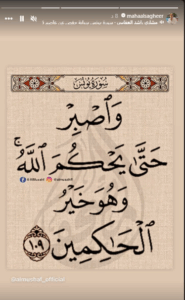 mahaabaghneri
سورة يونس
وَٱصۡبِرۡ
حَتَّىٰ يَحۡكُمَ ٱللَّهُۚ
وَهُوَ خَيۡرُ
ٱلۡحَـٰكِمِينَ ١٠٩